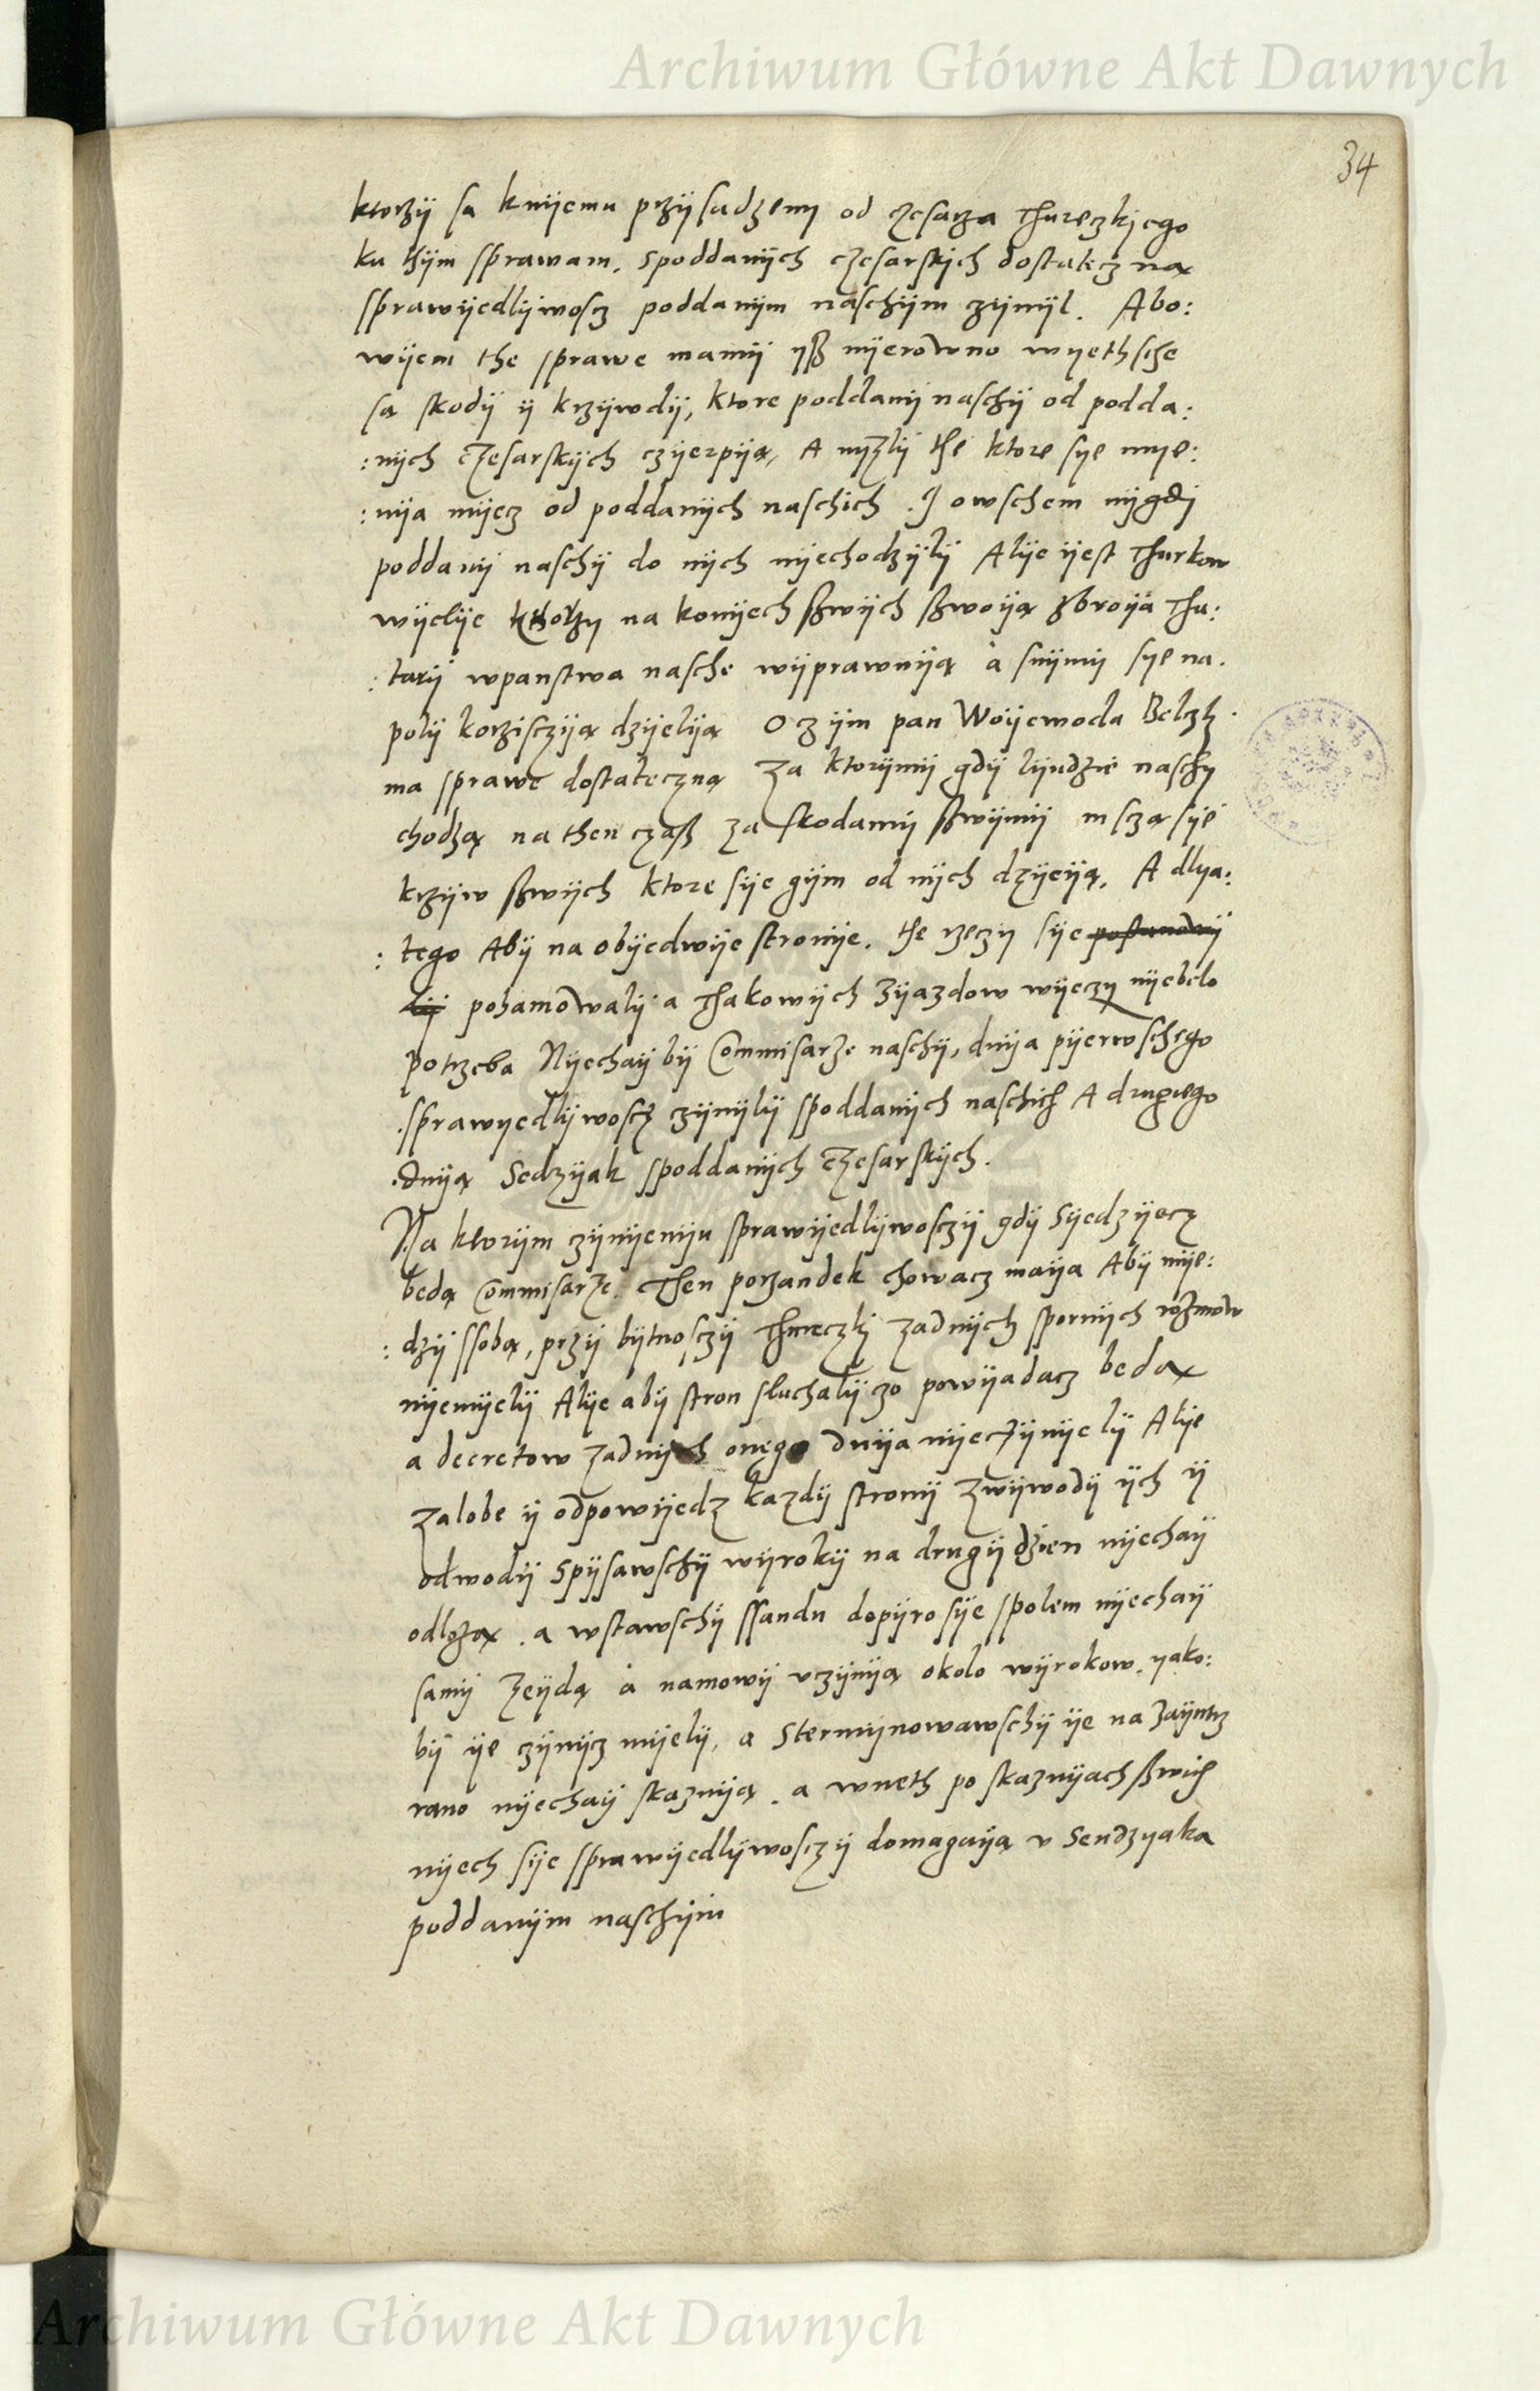 Archiwum Główne Akt Dawnych
34
ktorzÿ sa knÿemu przÿsadzeny od czesarza Thureczkjego
ku thÿm sprawam, spoddanÿch czesarskÿch dostateczną
sprawÿedlÿwoscz poddanÿm naschÿm czÿnÿl. Abo:
wÿem the sprawe mamÿ ÿß nÿerowno wyethsche
są skodÿ ÿ krzÿwdÿ, ktore poddanÿ naschÿ od podda:
:nÿch czesarskÿch czÿerpÿą, A nyzlÿ the ktore sye mye:
:nÿa mÿecz od poddanÿch naschich. I owschem nÿgdÿ
poddanÿ naschÿ do nÿch nÿechodzÿlÿ Alÿe ÿest Thurkow
wÿelÿe kthorzy na konÿech ßwÿch ßwoÿą zbroÿa Tha:
:tarÿ wpanstwa nasche wÿprawuÿą à snÿmÿ sye na.
polÿ korzisczÿą dzÿelÿą O czÿm pan Woÿewoda Belzkj
ma sprawe dostateczną Za ktorÿmÿ gdÿ lÿudzie naschy
chodzą na then czaß za skodamÿ ßwÿmÿ mszczą sÿe
krzÿw ßwÿch ktore sÿe gÿm od nÿch dzÿeÿą. A dlya:
:tego Abÿ na obÿedwÿe stronÿe. the rzeczy sÿe postanowÿ
lÿ pohamowalÿ a Thakowÿch zÿazdow wÿeczy nÿebelo
potrzeba Nÿechaÿbÿ Commisarze naschÿ, dnÿa pÿerwschego
sprawyedlÿwoscz czÿnÿlÿ spoddanÿch naschich A drugiego
dnÿą Sedzÿak spoddanÿch czesarskÿch.
Na ktorÿm czÿnÿenÿu sprawÿedlÿwosczÿ gdÿ Sÿedzÿecz
bedą Commisarze. Then porzandek chowacz maÿa Abÿ mÿe:
:dzÿ ssobą, przÿ bÿtnosczÿ Thureczkÿ zadnÿch spornÿch rozmow
nÿemÿelÿ Alÿe abÿ stron sluchalÿ czo powÿadacz bedą
a decretow zadnÿch onego dnÿa nÿeczÿnÿelÿ Alÿe
zalobe ÿ odpowÿedz kazdÿ stronÿ zwÿwodÿ ÿch ÿ
odwodÿ spÿsawschÿ wÿrokÿ na drugÿ dzien nÿechaÿ
odlożą. a wstawschÿ ssandu dopÿro sÿe spolem nÿechaÿ
samÿ zeÿdą à namowÿ uczÿnÿą okolo wÿrokow. yako:
bÿ ÿe czÿnÿcz mÿelÿ, a Stermÿnowawschÿ ÿe na zaÿutrz
rano nÿechaÿ skaznÿą. a wneth po skaznÿach ßwich
nÿech sÿe sprawÿedlÿwosczÿ domagaÿą u Sendzyaka
poddanÿm naschÿm
Archiwum Główne Akt Dawnych